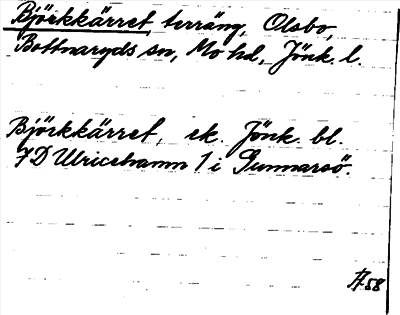 Björkkärret, terräng, Olsbo,
Bottnaryds sn, Mo hd, Jönk. l.
Björkkärret, ek. Jönk. bl.
7D Ulricehamn 1 i Gunnarsö.
A58